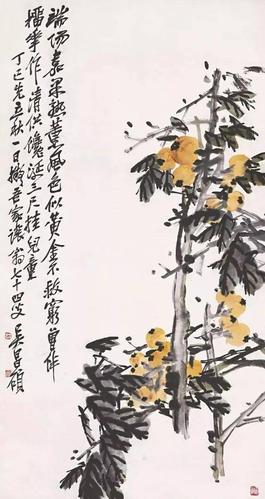 端陽嘉果熟薰風色似黃金不救窮曾作
作清供饞涎三尺挂兒童
丁巳先立秋一日擬吾家讓翁七十四叟
吳昌碩